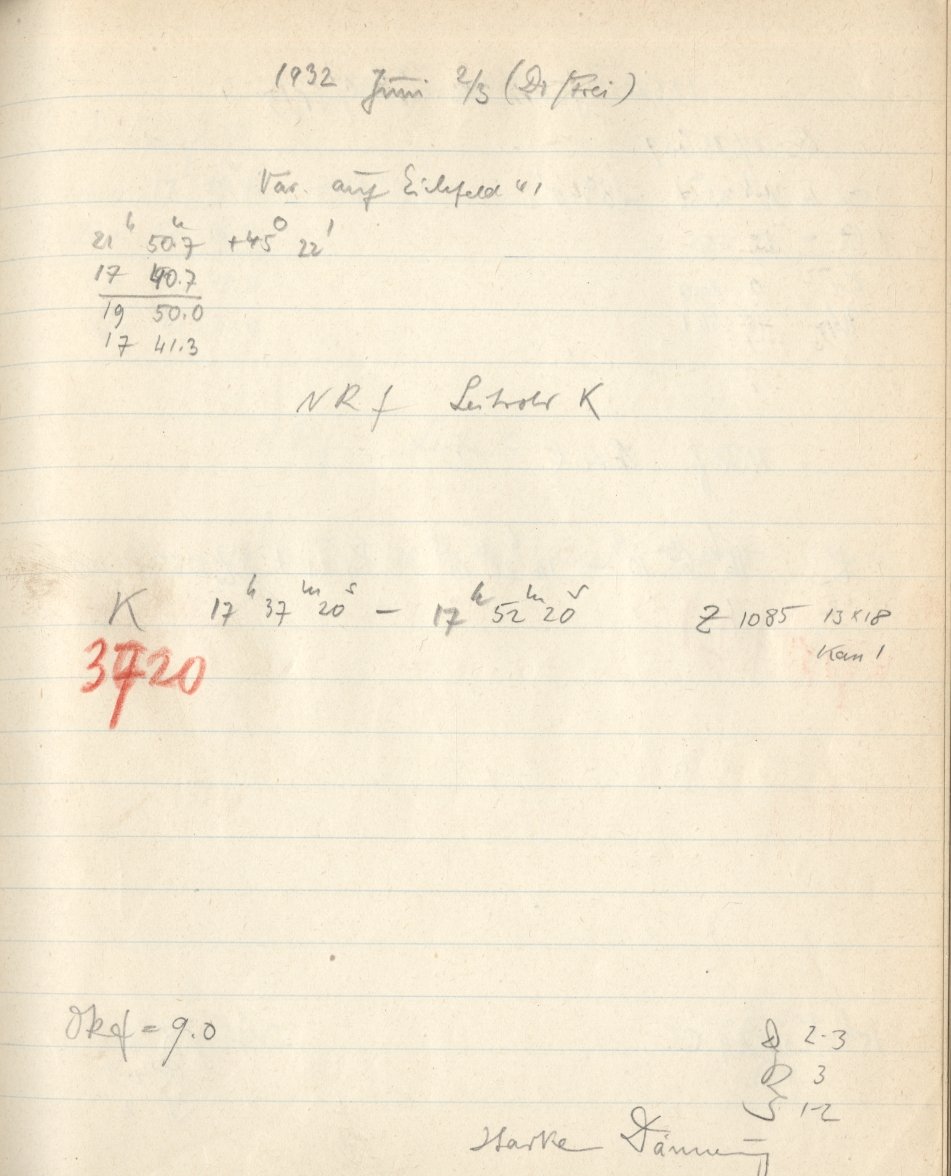 1932 Juni 2/3 (Do/Frei)
Var. auf Eichfeld 41
21h 50.7m +45° 22'
17 40.7
19 50.0
17 41.3
NRf Leitrohr K
K 17h 37m 20s — 17h 52m 20s Z 1085 13x18
Kan 1
3720
Okf = 9.0
D 2-3
R 3
S 1-2
Starke Dämmerung